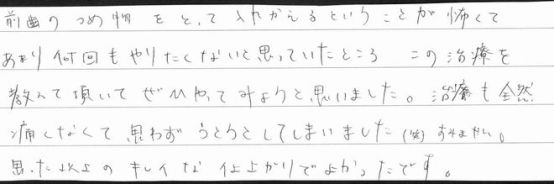 前歯のつめ物をとって入れかえるということが怖くて
あまり何回もやりたくないと思っていたところ この治療を
教えて頂いてぜひやってみようと思いました。治療も全然
痛くなくて思わずうとうとしてしまいました(笑)すみません。
思った以上のキレイな仕上がりでよかったです。